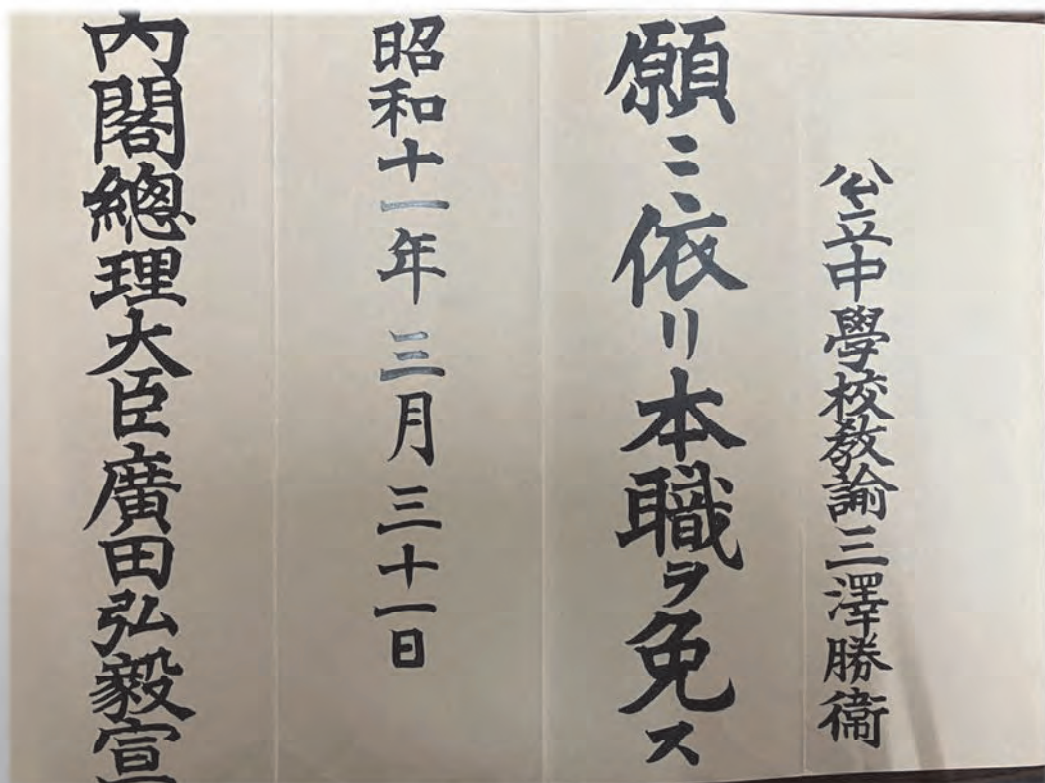 公立中學校敎諭三澤勝衞
願ニ依リ本職ヲ免ス
昭和十一年三月三十一日
内閣總理大臣廣田弘毅宣